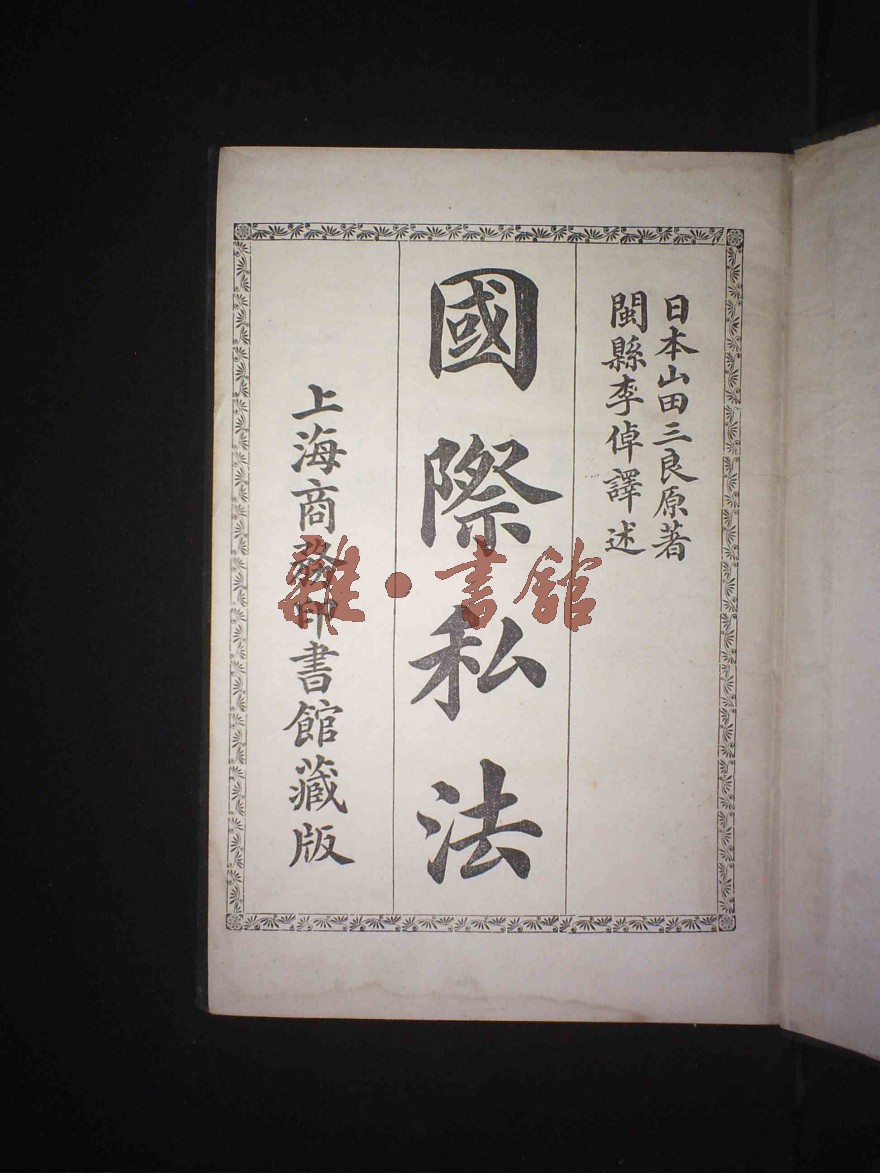 日本山田三良原著
閩縣李倬譯述
國際私法
上海商務印書館藏版
雜·書館